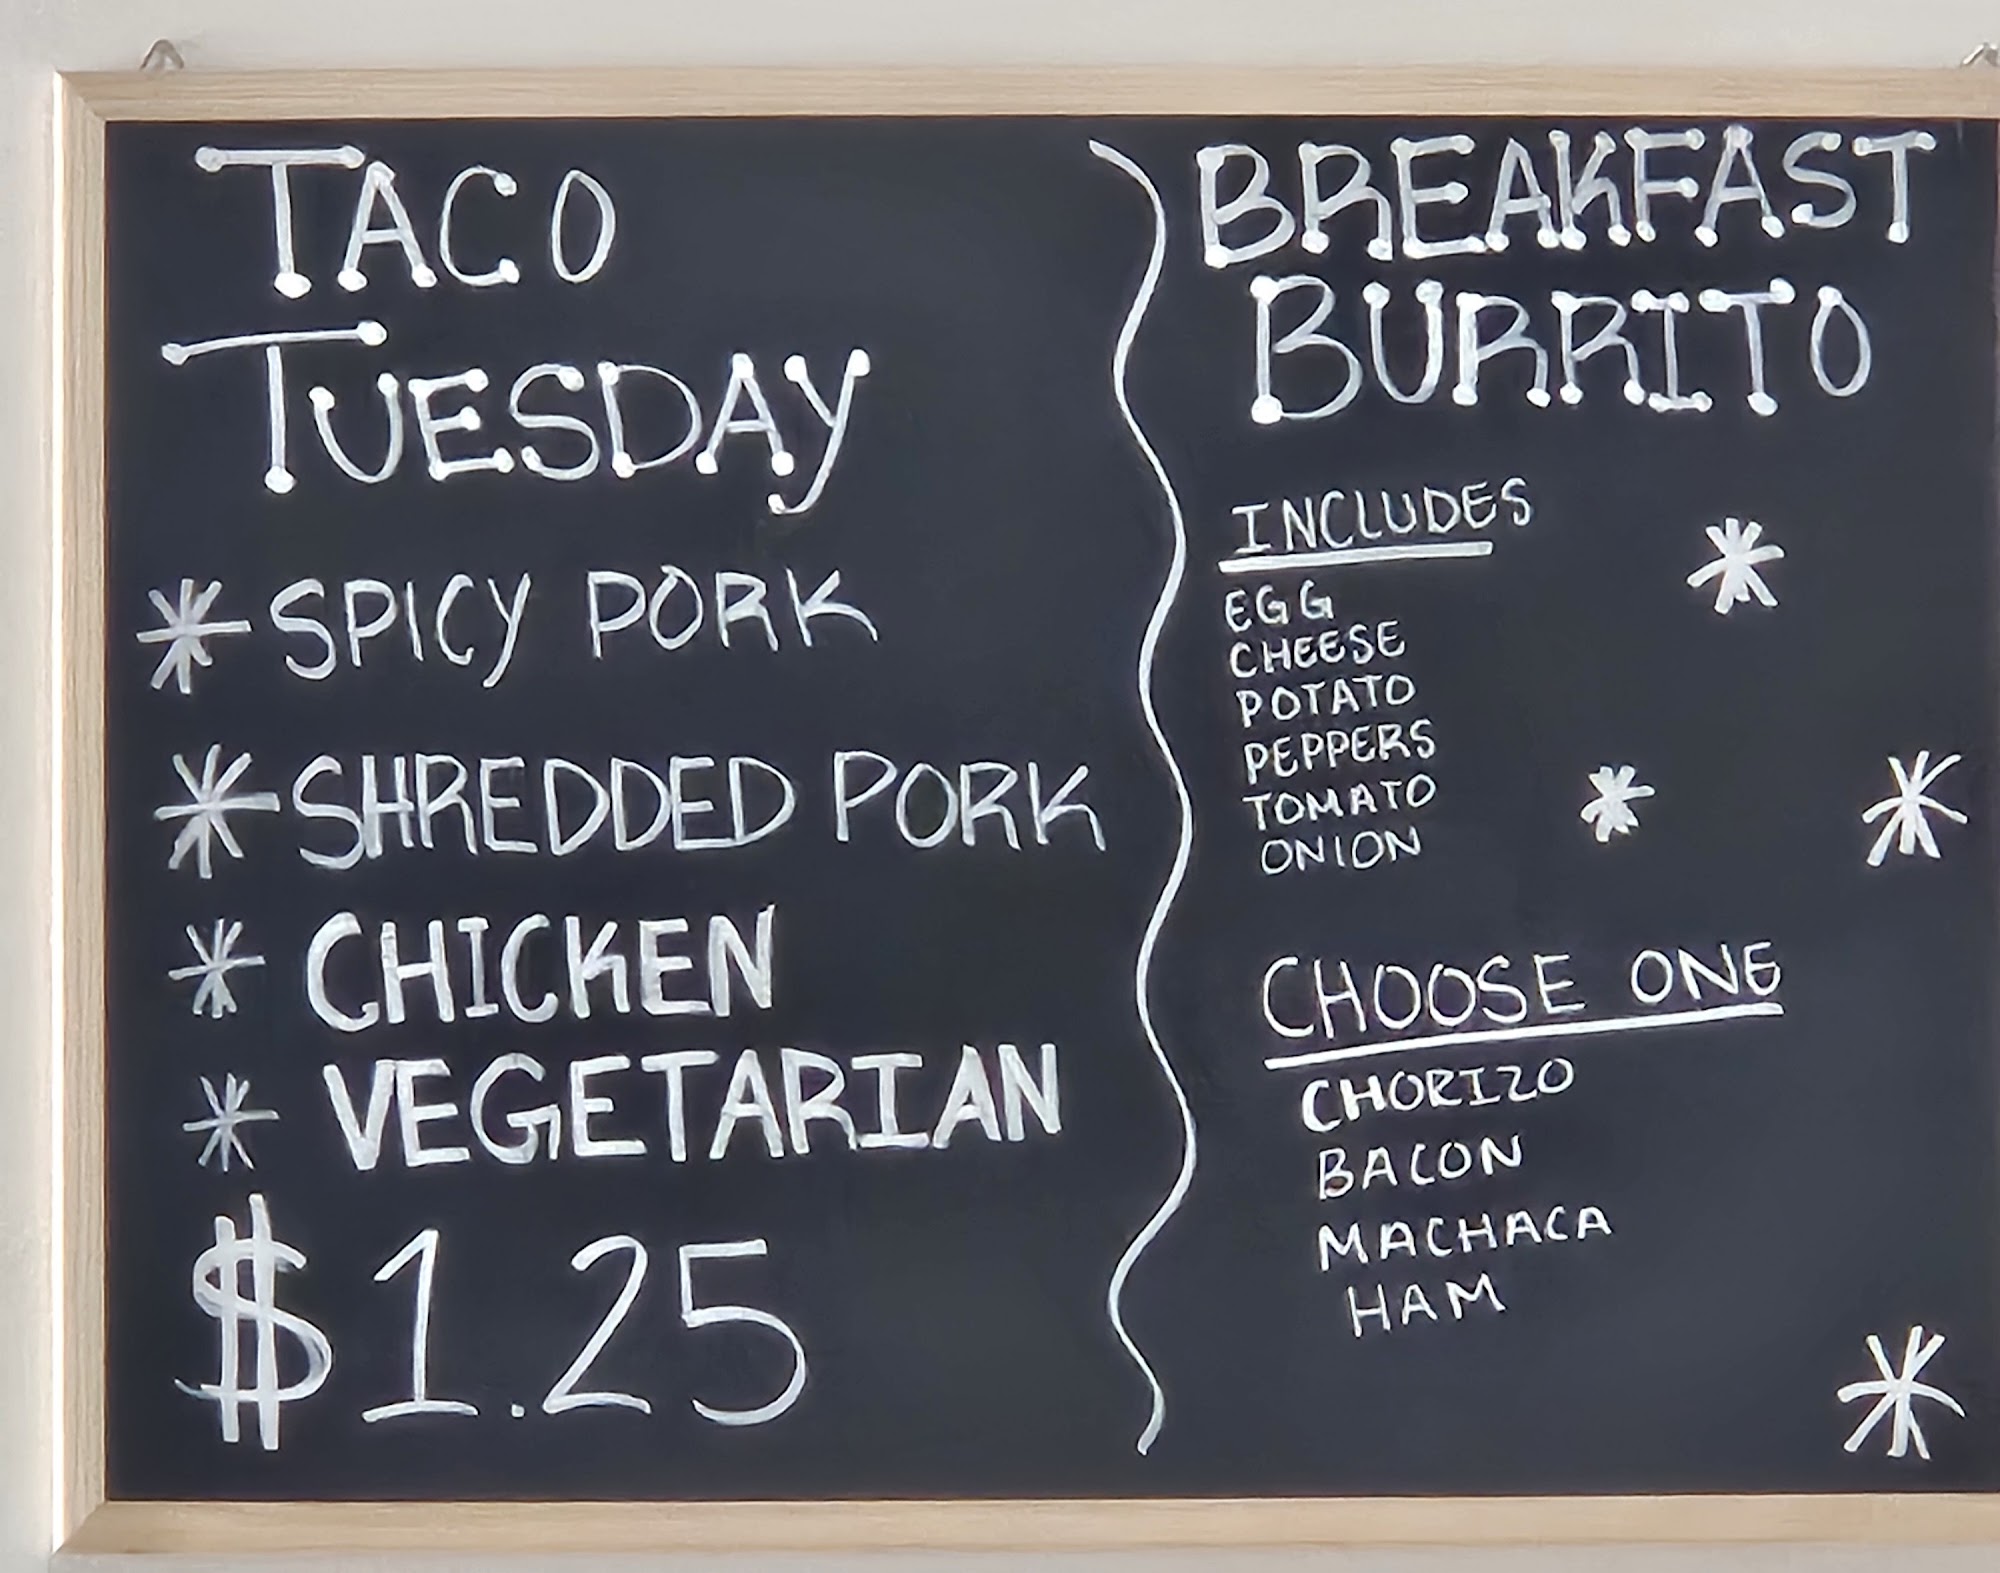 TACO
TUESDAY
* SPICY PORK
* SHREDDED PORK
* CHICKEN
* VEGETARIAN
$1.25
BREAKFAST
BURRITO
INCLUDES
EGG
CHEESE
POTATO
PEPPERS
TOMATO
ONION
CHOOSE ONE
CHORIZO
BACON
MACHACA
HAM